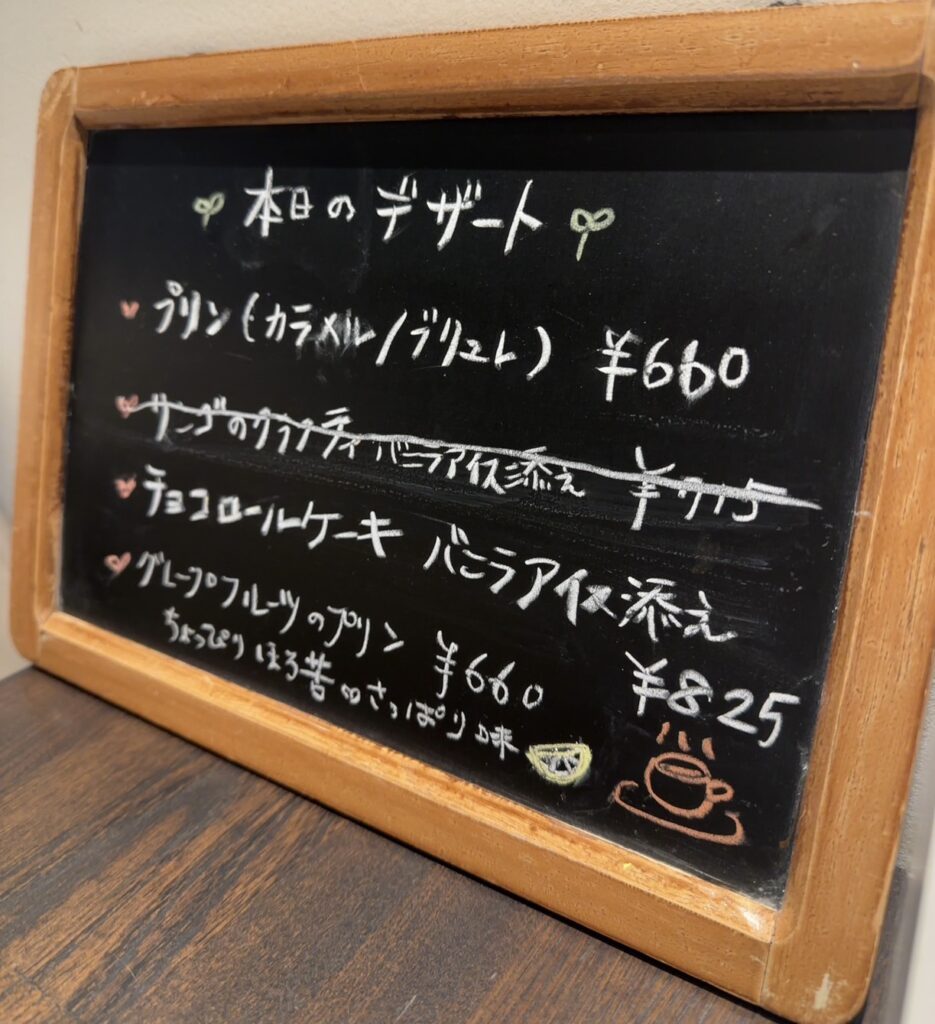 本日のデザート
プリン(カラメル/ブリュレ) ¥660
リンゴのクラフティ バニラアイス添え ¥715
チョコロールケーキ バニラアイス添え
¥825
グレープフルーツのプリン ¥660
ちょっぴりほろ苦∞さっぱり味